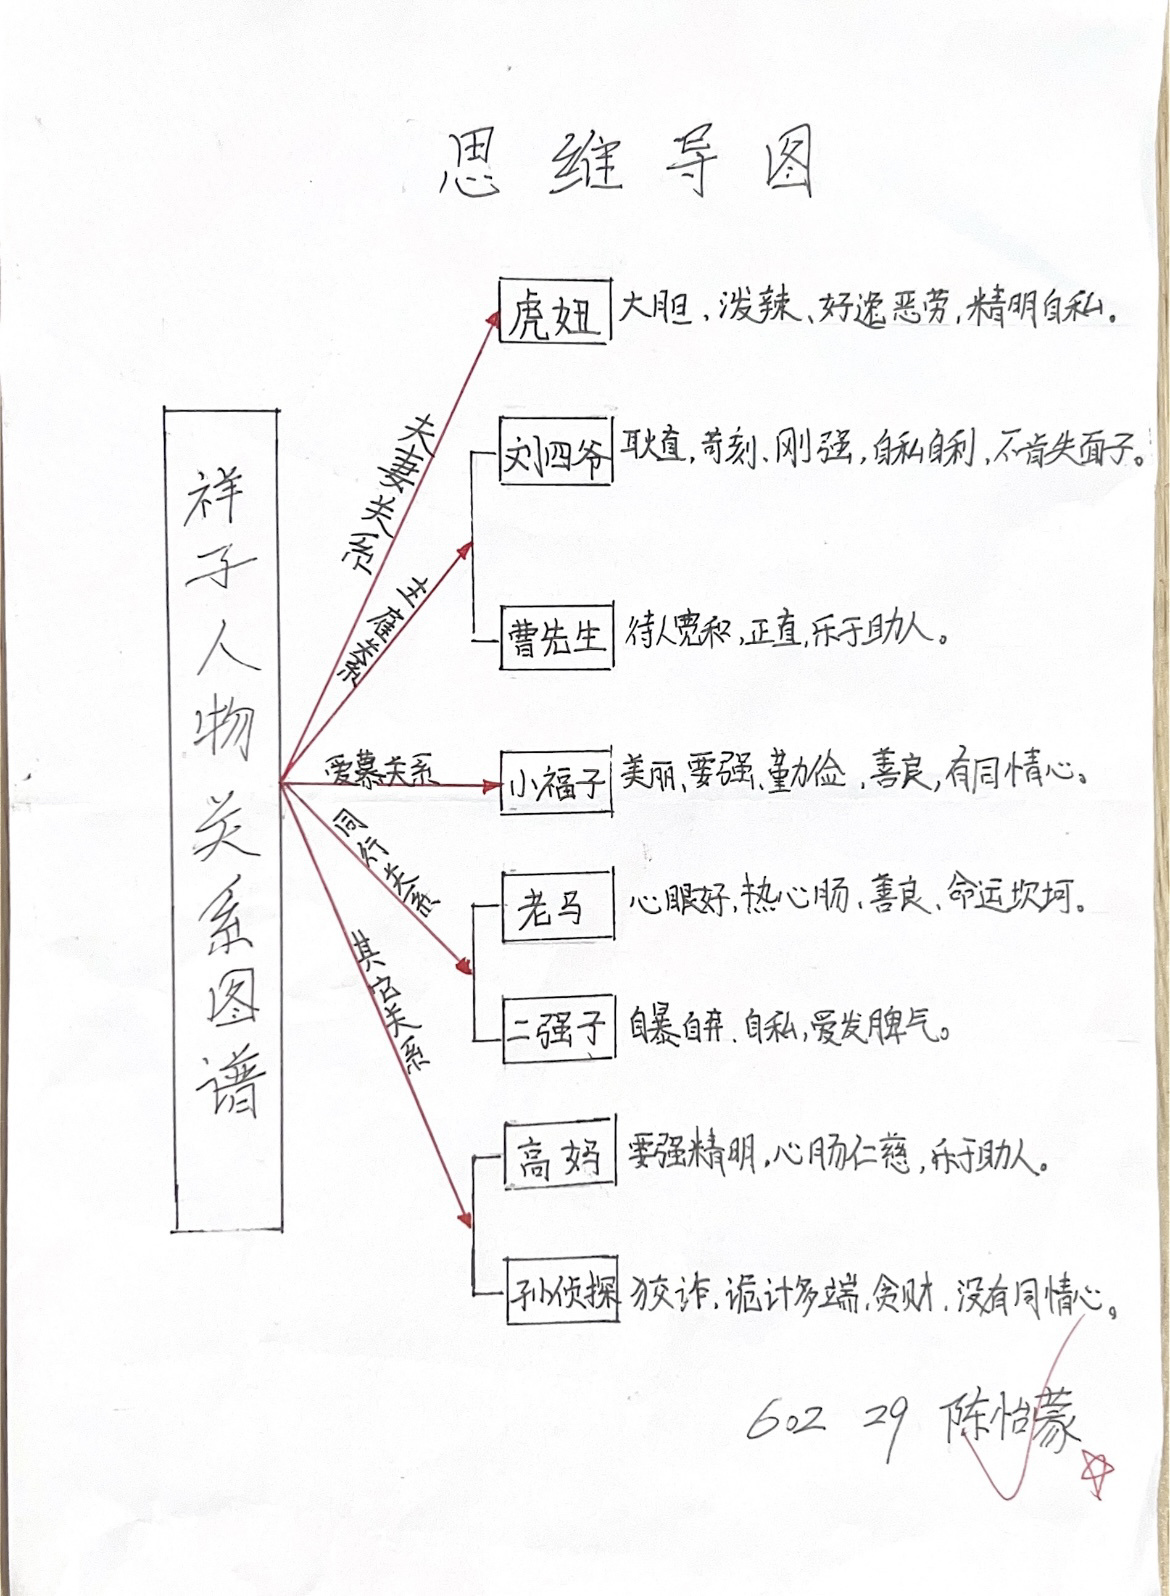 思维导图
祥子人物关系图谱
夫妻关系
虎妞 大胆、泼辣、好逸恶劳,精明自私。
主雇关系
刘四爷 耿直,苛刻、刚强,自私自利、不肯失面子。
曹先生 待人宽和,正直,乐于助人。
爱慕关系
小福子 美丽、要强、勤俭、善良,有同情心。
同行关系
老马 心眼好,热心肠、善良、命运坎坷。
二强子 自暴自弃、自私,爱发脾气。
其它关系
高妈 要强精明,心肠仁慈,乐于助人。
孙侦探 狡诈,诡计多端,贪财,没有同情心。
602 29 陈怡蒙